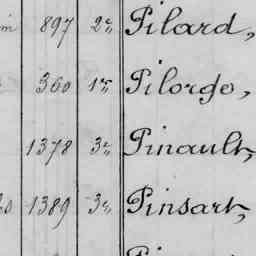 897 2e Pilard,
360 1er Pilorge,
1378 3e Pinault,
1389 3e Pinsart,